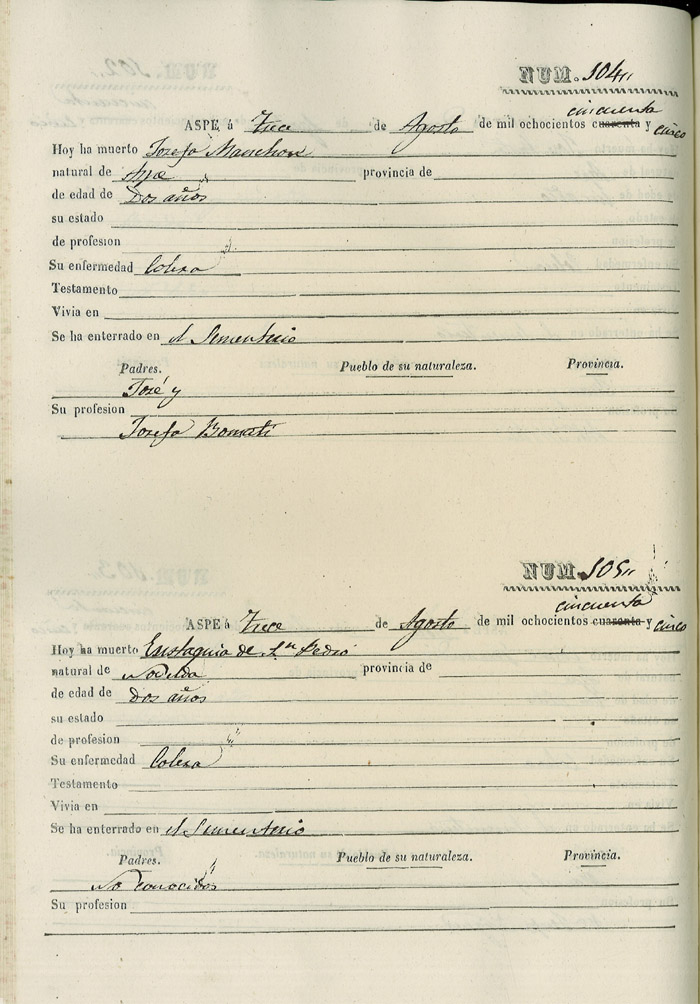 NUM. 104
cincuenta
ASPE, á Trece de Agosto de mil ochocientos cuarenta y cinco
Hoy ha muerto Josefa Manchon
natural de Aspe provincia de
de edad de Dos años
su estado
de profesion
Su enfermedad Colera
Testamento
Vivia en
Se ha enterrado en el Sementerio
Padres. Pueblo de su naturaleza. Provincia.
José y
Su profesion
Josefa Bonmati
NUM. 105
cincuenta
ASPE á Trece de Agosto de mil ochocientos cuarenta y cinco
Hoy ha muerto Eustaquia de Sn Pedro
natural de Novelda provincia de
de edad de dos años
su estado
de profesion
Su enfermedad Colera
Testamento
Vivia en
Se ha enterrado en el Sementerio
Padres. Pueblo de su naturaleza. Provincia.
No conocidos
Su profesion